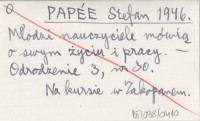 PAPÉE Stefan 1946.
Młodzi nauczyciele mówią
o swym życiu i pracy. —
Odrodzenie 3, nr 30.
Na kursie w Zakopanem.